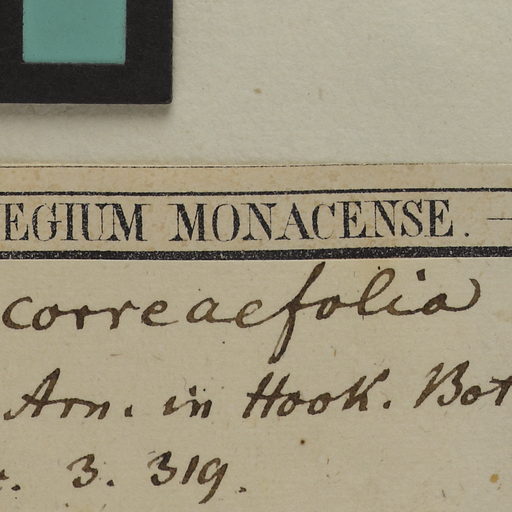 EGIUM MONACENSE. —
correaefolia
Arn. in Hook. Bot
. 3. 319.